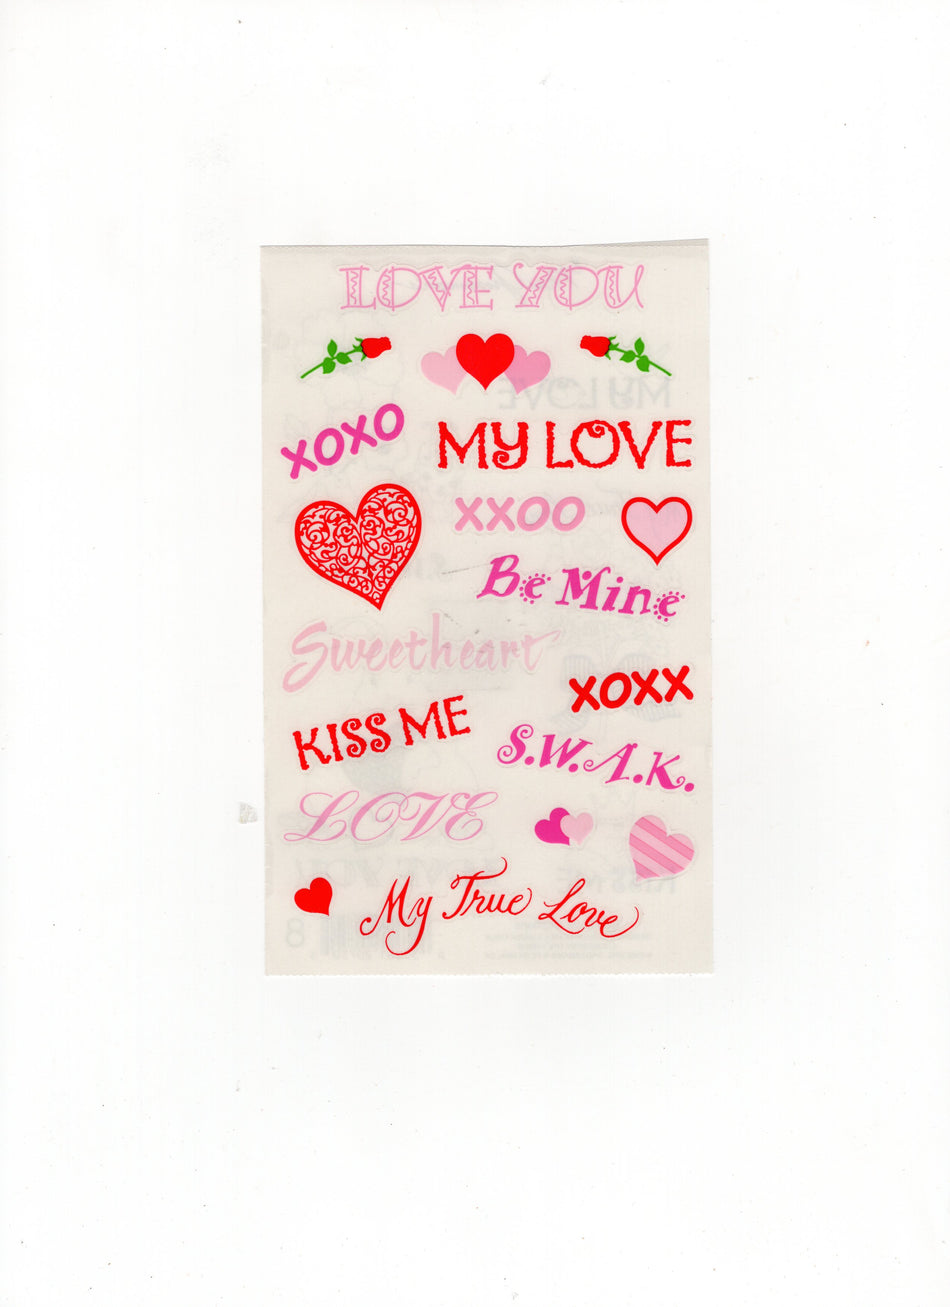 LOVE YOU
XOXO
MY LOVE
XXOO
Be Mine
Sweetheart
XOXX
KISS ME
S.W.A.K.
LOVE
My True Love
MY LOVE
KISS ME
8